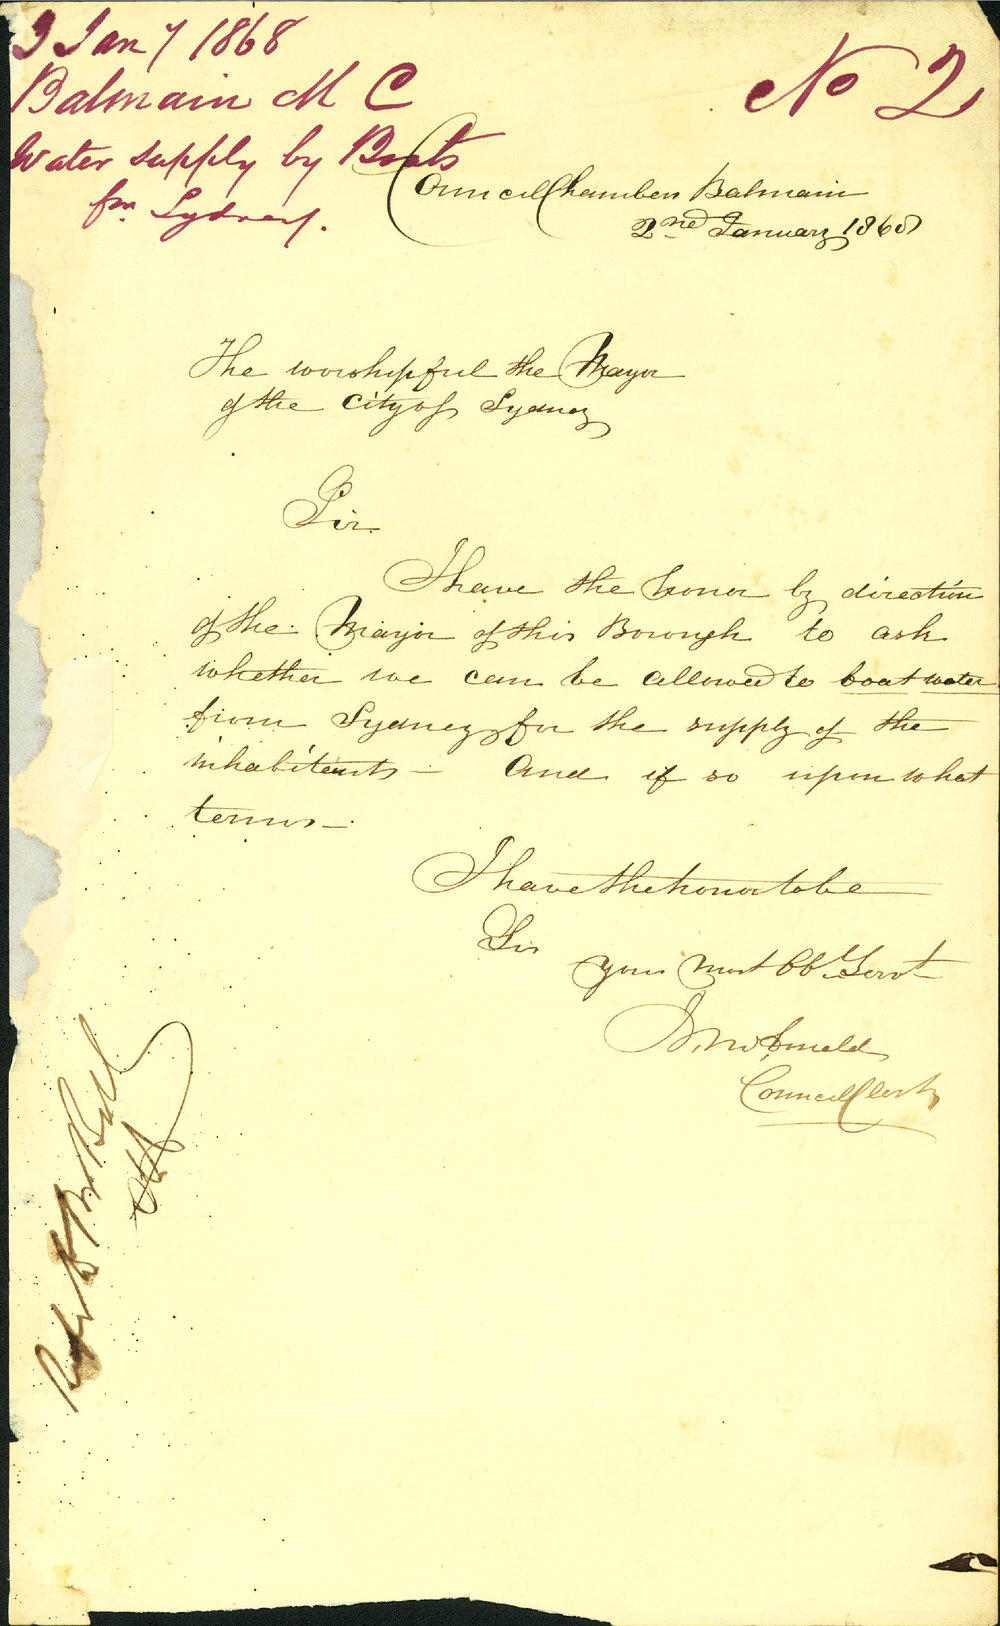 3 Jany 1868
Balmain M C
Water supply by Boats
fm Sydney.
No 2
Council Chambers Balmain
2nd January 1868
The worshipful the Mayor
of the City of Sydney
Sir
I have the honor by direction
of the Mayor of this Borough to ask
whether we can be allowed to boat water
from Sydney for the supply of the
inhabitants — And if so upon what
terms —
I have the honor to be
Sir
your most Ob Servt
Council Clerk
Refer to Mr Bell